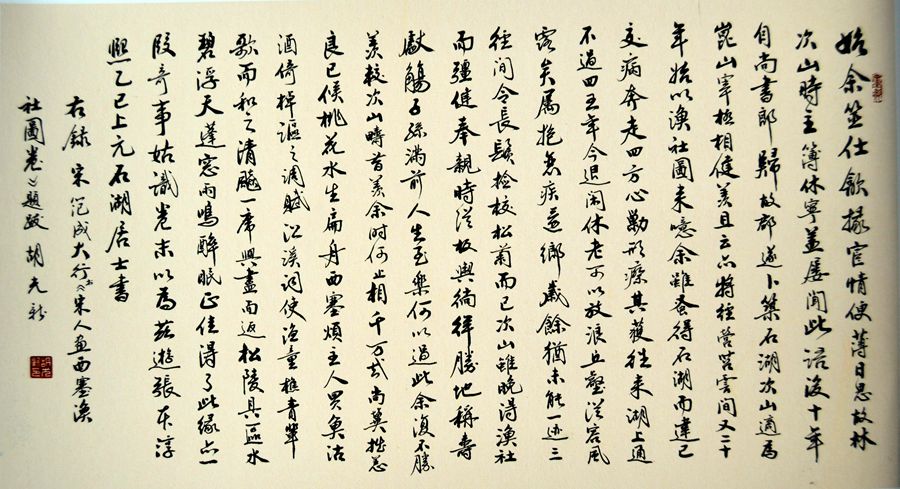 始余筮仕歙掾宦情便薄日思故林
次山時主簿休寧蓋屢聞此語後十年
自尚書郎歸故郡遂卜築石湖次山適為
崑山宰極相健羨且云亦將經營苕霅間又二十
年始以漁社圖來噫余雖蚤得石湖而違己
交病奔走四方心勦形瘵其獲往來湖上通
不過四五年今退閑休老可以放浪丘壑從容風
露矣屬抱衰疾還鄉歲餘猶未能一迹三
徑間令長鬚檢校松菊而已次山雖晚得漁社
而彊健奉親時從板輿徜徉勝地稱壽
獻觴子孫滿前人生至樂何以過此余復不勝
羨較次山疇昔羨余時何止相千萬哉尚冀拙恙
良已候桃花水生扁舟西塞煩主人買魚沽
酒倚棹謳之調賦沿溪詞使漁童樵青輩
歌而和之清飈一席興盡而返松陵具區水
碧浮天蓬窓雨鳴醉眠正佳得了此緣亦一
段奇事姑識卷末以為兹遊張本淳
熙乙巳上元石湖居士書
右録宋范成大行書宋人畫西塞漁
社圖卷之題跋胡光新